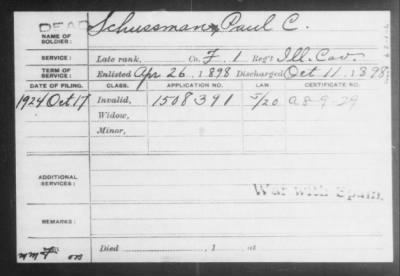 DEAD
NAME OF SOLDIER: Schussman, Paul C.
SERVICE: Late rank, Co. F. 1 Reg't Ill. Cav.
TERM OF SERVICE: Enlisted Apr 26, 1898 Discharged Oct 11, 1898
DATE OF FILING. CLASS. APPLICATION NO. LAW CERTIFICATE NO.
1924 Oct 17 Invalid, 1508391 5/20 A 8-9-29
Widow,
Minor,
ADDITIONAL SERVICES:
War with Spain.
REMARKS:
Died , 1 at